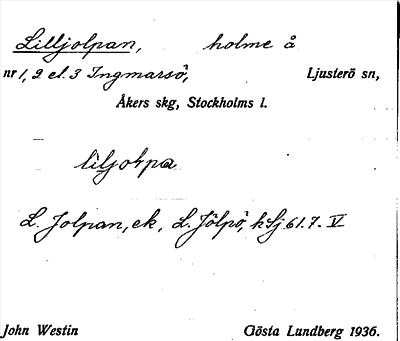 Lilljolpan, holme å
nr 1, 2 el. 3 Ingmarsö, Ljusterö sn,
Åkers skg, Stockholms l.
liljolpa
L. Jolpan, ek, L. Jölpö, kSj 61.7. IV
John Westin Gösta Lundberg 1936.